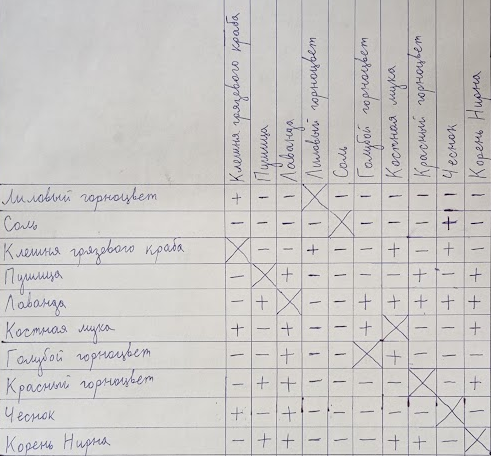 Клешня грязевого краба
Пушица
Лаванда
Лиловый горноцвет
Соль
Голубой горноцвет
Костная мука
Красный горноцвет
Чеснок
Корень Нирна
Лиловый горноцвет + - - X - - - - - -
Соль - - - - X - - - + -
Клешня грязевого краба X - - + - - + - + -
Пушица - X + - - - - + - +
Лаванда - + X - - + + + + +
Костная мука + - + - - + X - - +
Голубой горноцвет - - + - - X + - - -
Красный горноцвет - + + - - - - X - +
Чеснок + - + - - - - - X -
Корень Нирна - + + - - - + + - X